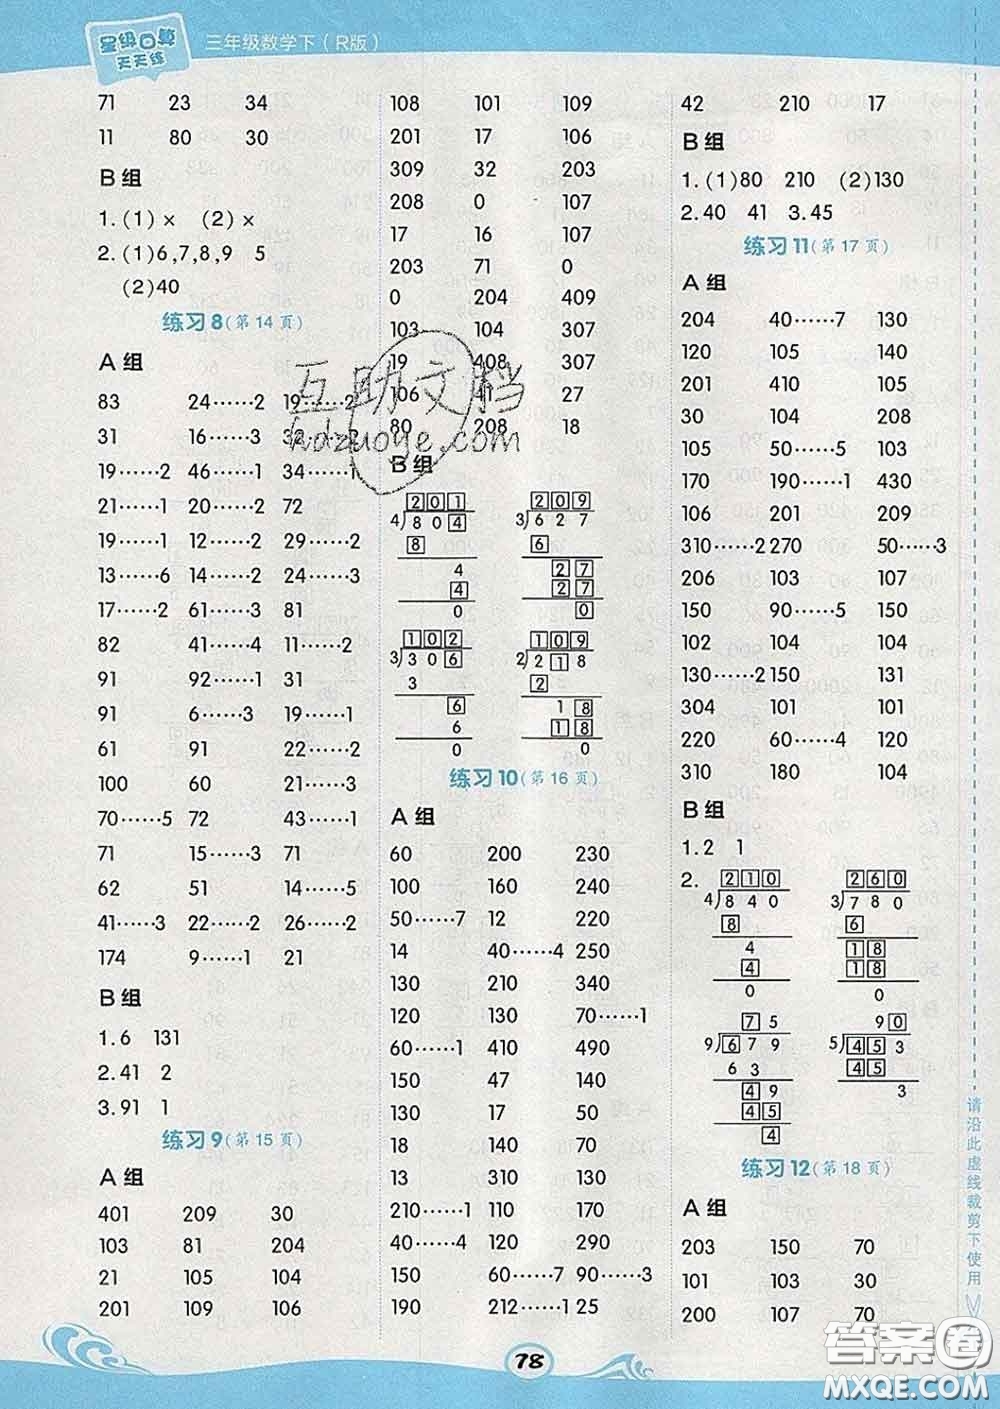 星级口算
天天练
三年级数学下（R版）
71 23 34
11 80 30
B 组
1.(1)× (2)×
2.(1)6,7,8,9 5
(2)40
练习8(第14页)
A 组
83 24……2 19……2
31 16……3 32……3
19……2 46……1 34……1
21……1 20……2 72
19……1 12……2 29……2
13……6 14……2 24……3
17……2 61……3 81
82 41……4 11……2
91 92……1 31
91 6……3 19……1
61 91 22……2
100 60 21……3
70……5 72 43……1
71 15……3 71
62 51 14……5
41……3 22……2 26……2
174 9……1 21
B 组
1.6 131
2.41 2
3.91 1
练习9(第15页)
A 组
401 209 30
103 81 204
21 105 104
201 109 106
108 101 109
201 17 106
309 32 203
208 0 107
17 16 107
203 71 0
0 204 409
103 104 307
19 408 307
106 41 27
80 208 18
B 组
201 209
4 804 3 627
8 6
4 27
4 27
0 0
102 109
3 306 2 218
3 2
6 18
6 18
0 0
练习10(第16页)
A 组
60 200 230
100 160 240
50……7 12 220
14 40……4 250
130 210 340
120 130 70……1
60……1 410 490
150 47 140
130 17 50
18 140 70
13 310 130
210……1 110 170
40……4 120 290
150 60……7 90……3
190 212……1 25
42 210 17
B 组
1.(1)80 210 (2)130
2.40 41 3.45
练习11(第17页)
A 组
204 40……7 130
120 105 140
201 410 105
30 104 208
105 50……5 103
170 190……1 430
106 201 209
310……2 270 50……3
206 103 107
150 90……5 150
102 104 104
130……2 150 131
304 101 101
220 60……4 120
310 180 104
B 组
1.2 1
2. 210 260
4 840 3 780
8 6
4 18
4 18
0 0
75 90
9 679 5 453
63 45
49 3
45
4
练习12(第18页)
A 组
203 150 70
101 103 30
200 107 70
请沿此虚线裁剪下使用
78
互助文档
hdzuoye.com
答案圈
MXQE.COM